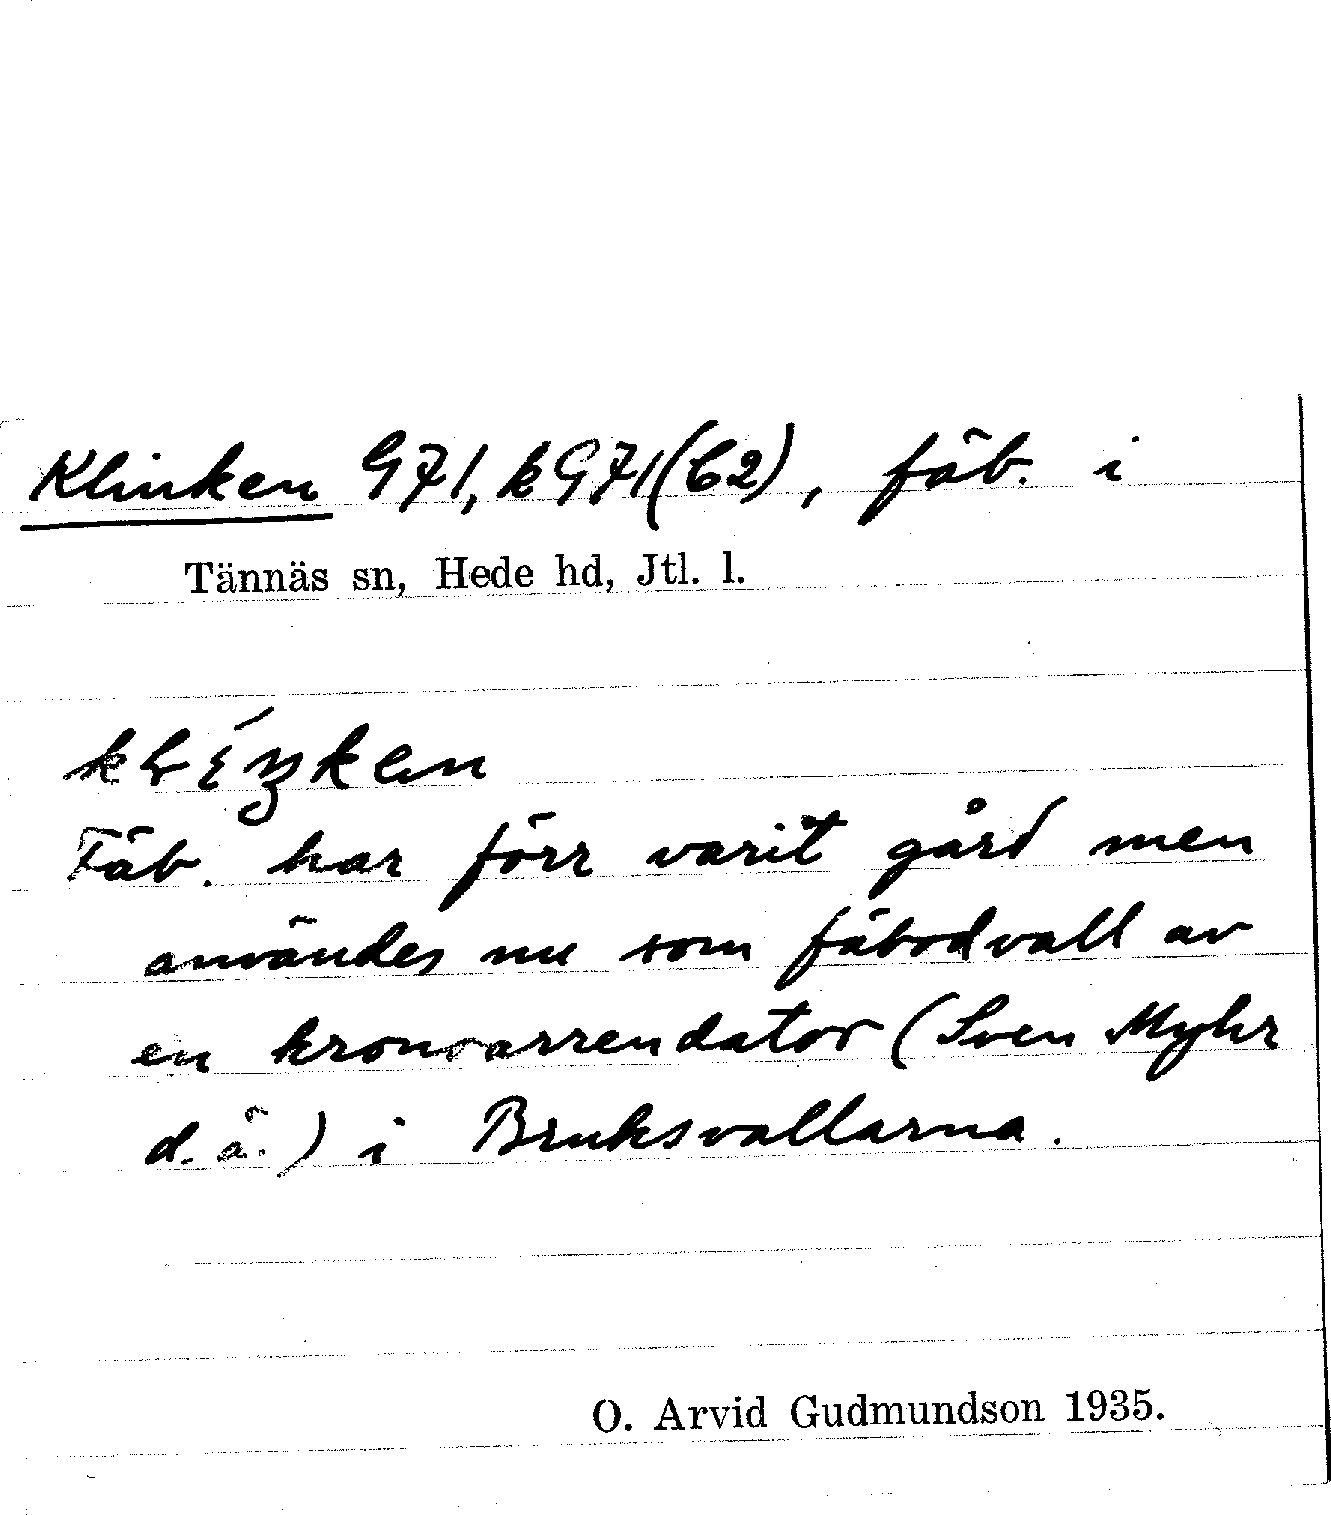 Klinken G71, kG71(C2), fäb. i
Tännäs sn, Hede hd, Jtl. l.
Fäb. har förr varit gård men
användes nu som fäbodvall av
en kronoarrendator (Sven Myhr
d.ä.) i Bruksvallarna.
O. Arvid Gudmundson 1935.